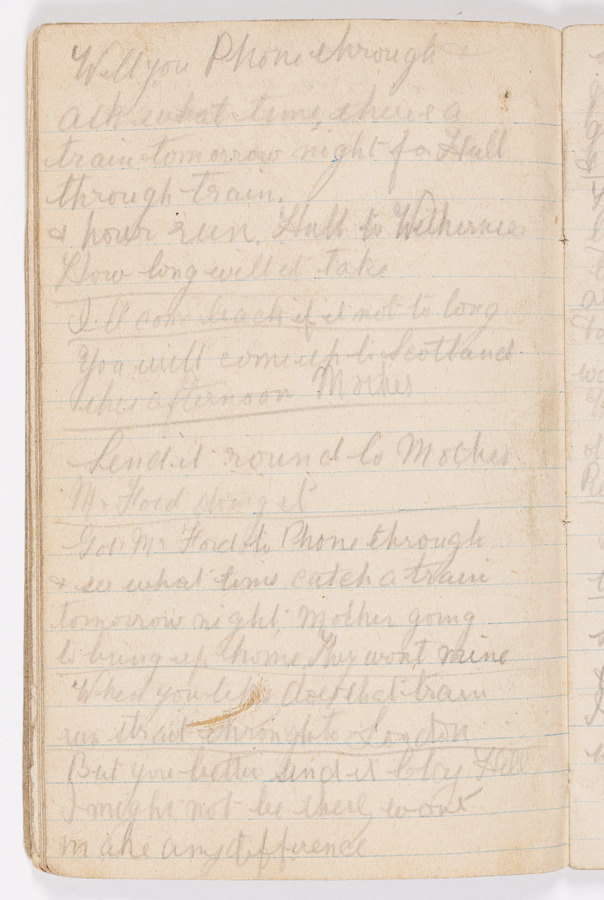 Will you Phone through
ask what time there is a
train tomorrow night for Hull
through train.
& hour run. Hull to Withernsea
How long will it take
I'll come back if it not to long
You will come up to Scotland
this afternoon Mother
Send it round to Mother
Mr Ford doing it
Got Mr Ford to Phone through
& see what time catch a train
tomorrow night Mother going
to bring up home They wont mine
When you left does that train
run strait through to London
But you better send it Clay Hill
I might not be there, wont
make any difference